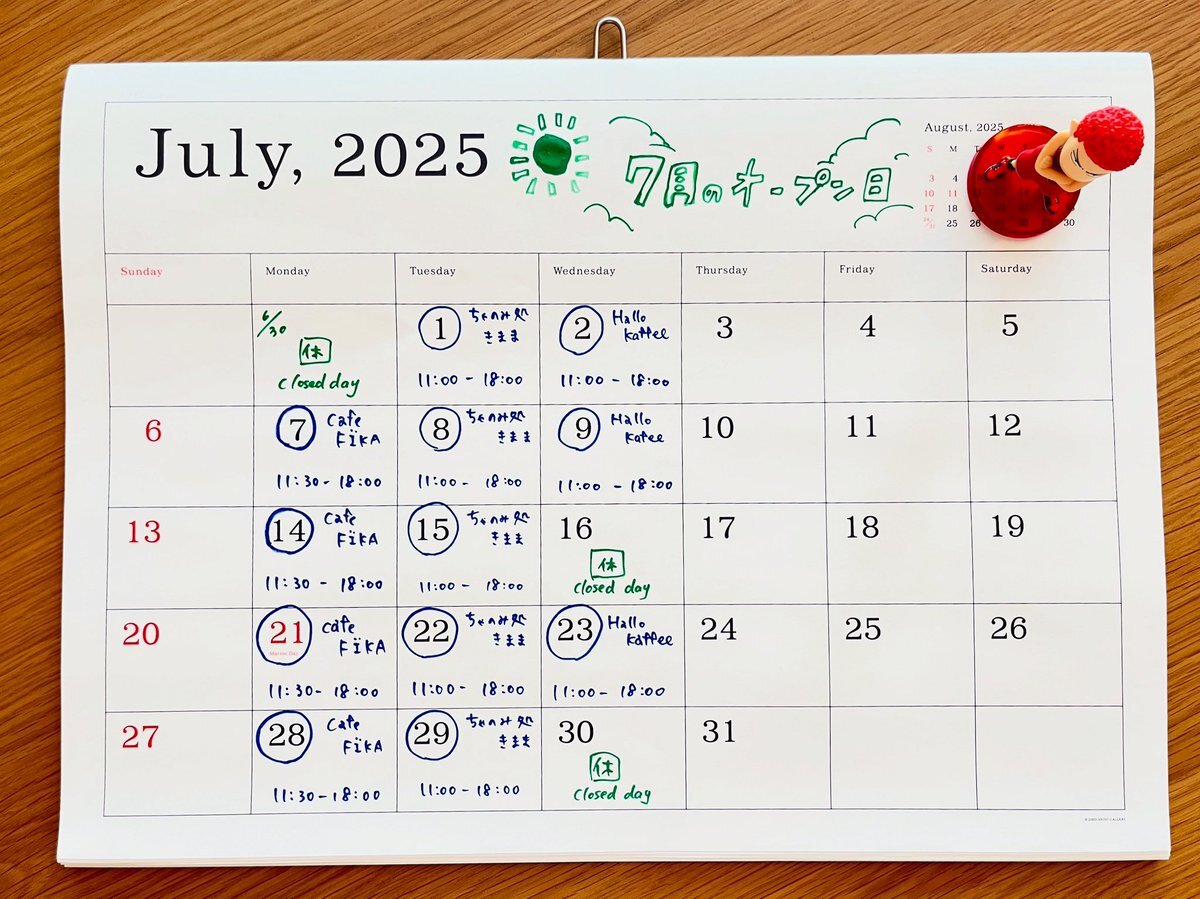 July, 2025
7月のオープン日
August, 2025
S M
3 4
10 11
17 18
24/31 25 26 30
Sunday Monday Tuesday Wednesday Thursday Friday Saturday
6/30
休
closed day
1 ちゃのみ処
きまま
11:00 - 18:00
2 Hallo
Kaffee
11:00 - 18:00
3
4
5
6
7 Cafe
FÏKA
11:30 - 18:00
8 ちゃのみ処
きまま
11:00 - 18:00
9 Hallo
Kafee
11:00 - 18:00
10
11
12
13
14 Cafe
FÏKA
11:30 - 18:00
15 ちゃのみ処
きまま
11:00 - 18:00
16
休
closed day
17
18
19
20
21 Cafe
Marine Day
FÏKA
11:30 - 18:00
22 ちゃのみ処
きまま
11:00 - 18:00
23 Hallo
Kaffee
11:00 - 18:00
24
25
26
27
28 Cafe
FÏKA
11:30 - 18:00
29 ちゃのみ処
きまま
11:00 - 18:00
30
休
closed day
31